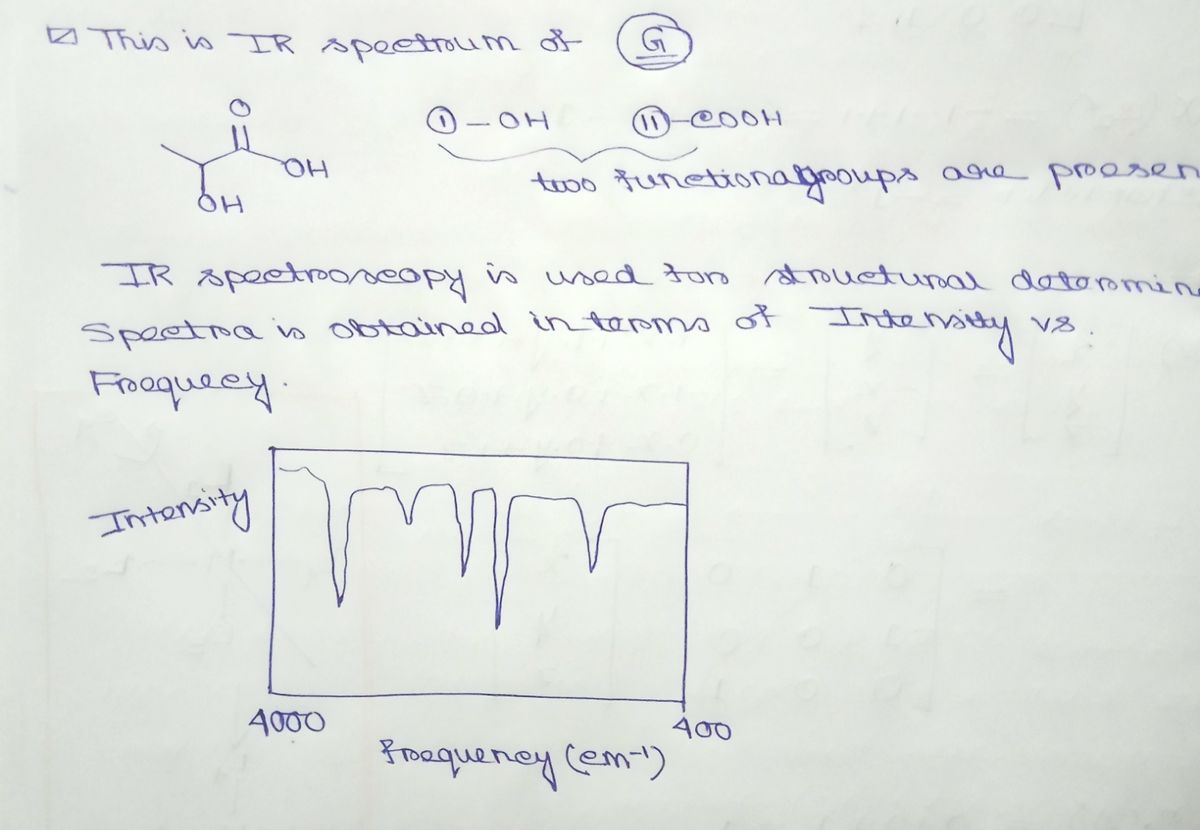 This is IR spectroum of G
O
OH
OH
① - OH ⑪ - COOH
two functional groups are proesen
IR spectroscopy is used foro structural determin
Spectra is obtained in teroms of Intensity vs.
Froequecy.
Intensity
4000
400
Froequency (cm⁻¹)